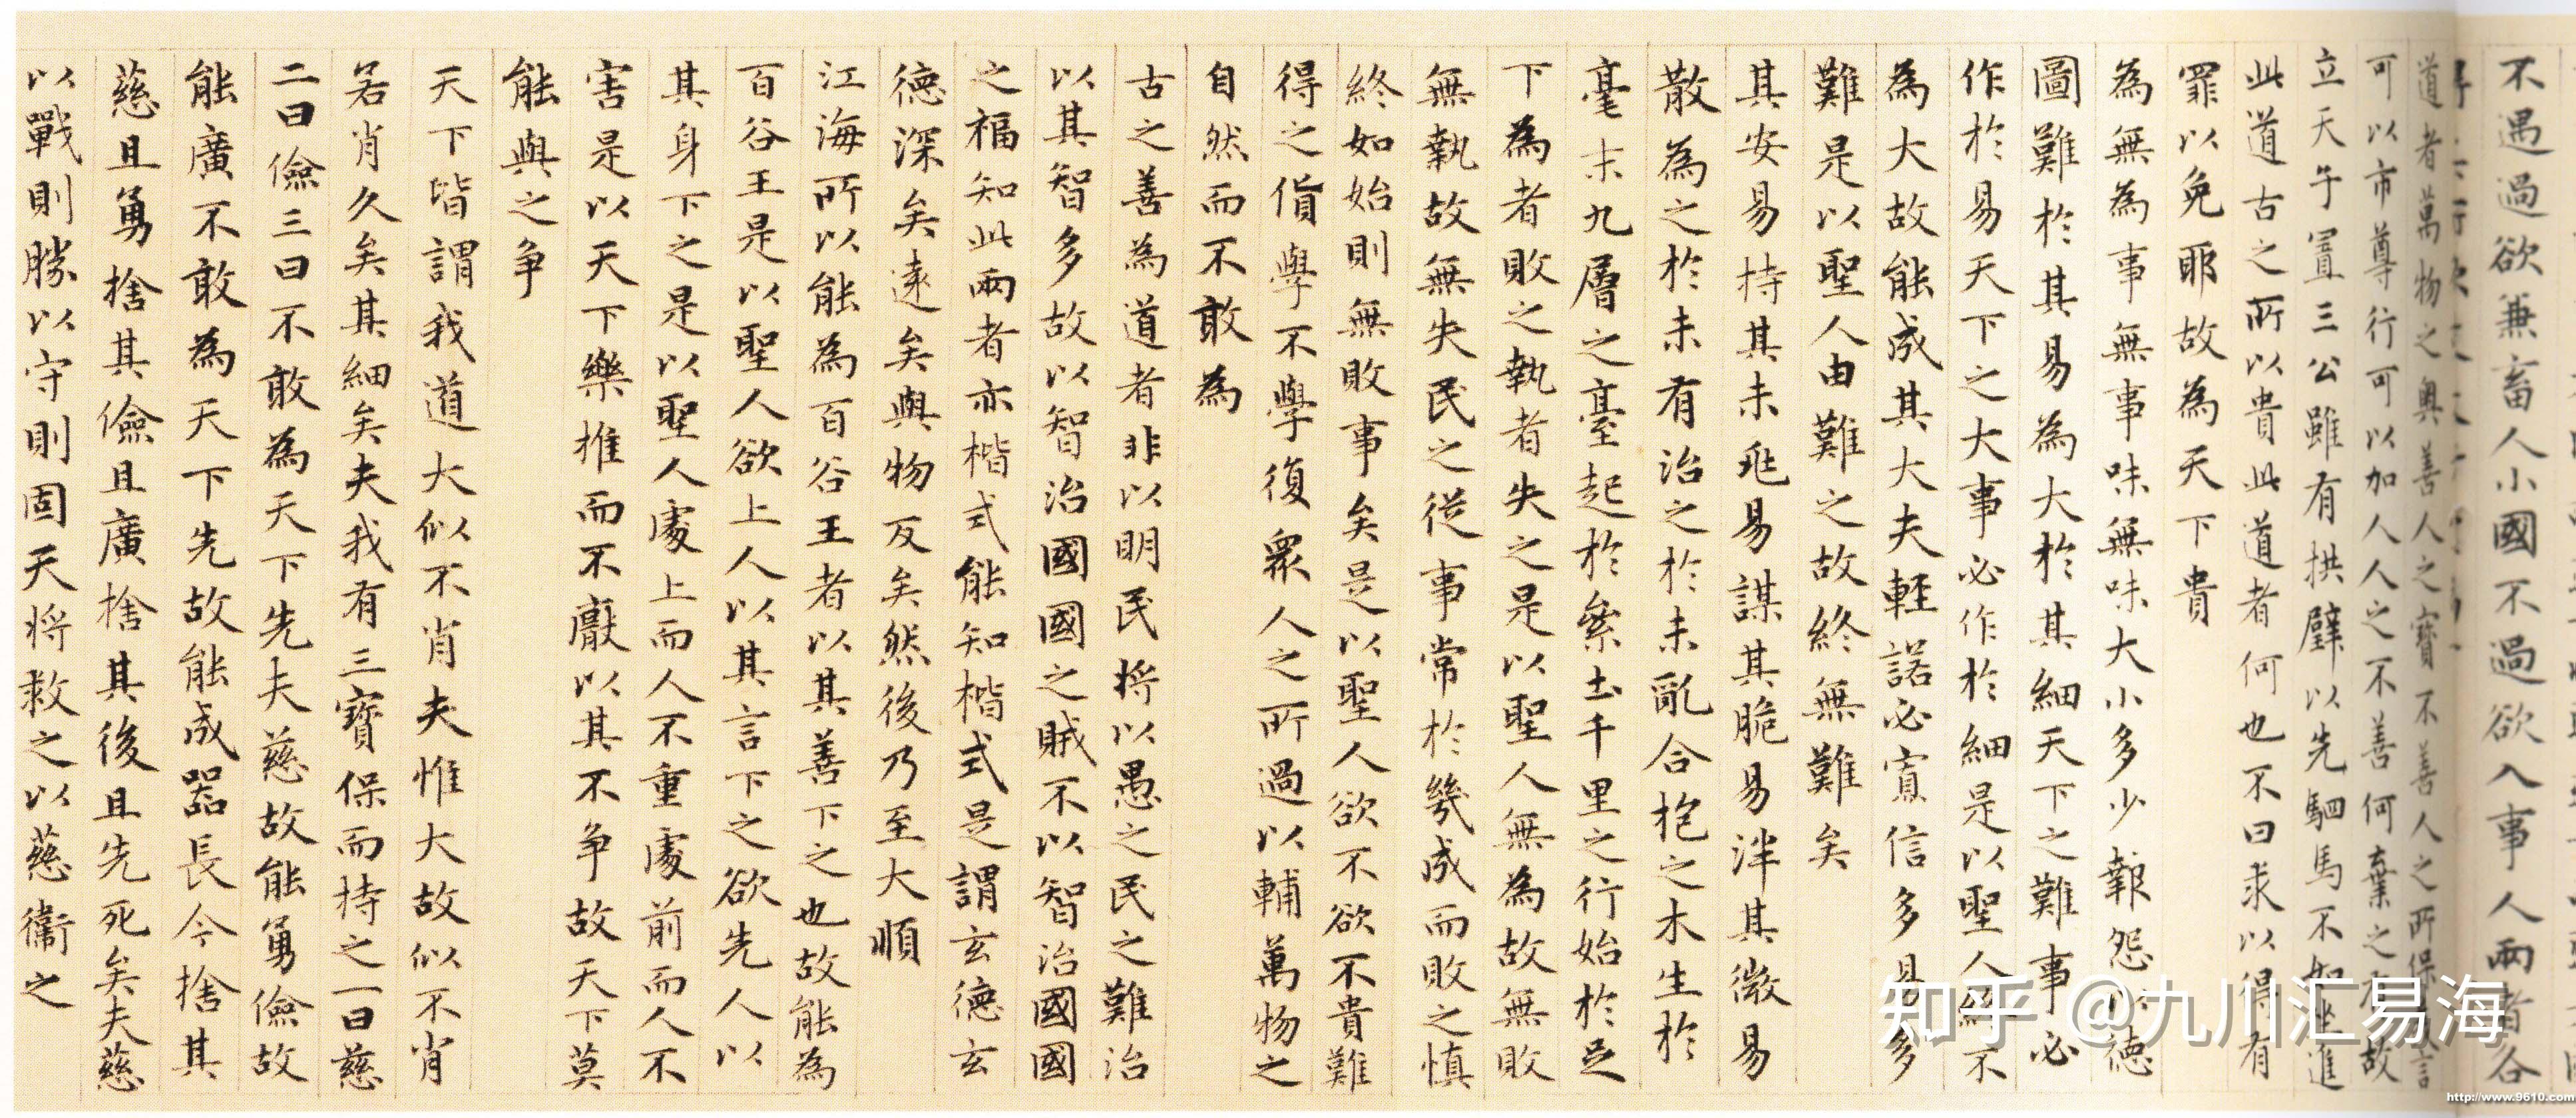 不遇過欲兼畜人小國不過欲入事人兩者各
道者萬物之奧善人之寶不善人之所保言
可以市尊行可以加人人之不善何棄之有故
立天子置三公雖有拱璧以先駟馬不如坐進
此道古之所以貴此道者何也不曰求以得有
罪以免耶故為天下貴
為無為事無事味無味大小多少報怨以德
圖難於其易為大於其細天下之難事必
作於易天下之大事必作於細是以聖人終不
為大故能成其大夫輕諾必寡信多易多
難是以聖人由難之故終無難矣
其安易持其未兆易謀其脆易泮其微易
散為之於未有治之於未亂合抱之木生於
毫末九層之臺起於絫土千里之行始於足
下為者敗之執者失之是以聖人無為故無敗
無執故無失民之從事常於幾成而敗之慎
終如始則無敗事矣是以聖人欲不欲不貴難
得之貨學不學復衆人之所過以輔萬物之
自然而不敢為
古之善為道者非以明民將以愚之民之難治
以其智多故以智治國國之賊不以智治國國
之福知此兩者亦楷式能知楷式是謂玄德玄
德深矣遠矣與物反矣然後乃至大順
江海所以能為百谷王者以其善下之也故能為
百谷王是以聖人欲上人以其言下之欲先人以
其身下之是以聖人處上而人不重處前而人不
害是以天下樂推而不厭以其不争故天下莫
能與之争
天下皆謂我道大似不肖夫惟大故似不肖
若肖久矣其細矣夫我有三寶保而持之一曰慈
二曰儉三曰不敢為天下先夫慈故能勇儉故
能廣不敢為天下先故能成器長今捨其
慈且勇捨其儉且廣捨其後且先死矣夫慈
以戰則勝以守則固天將救之以慈衞之
知乎 @九川汇易海
http://www.9610.com